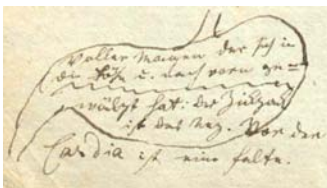 Voller Magen der sich in
die Höhe u. nach vorn ge=
wälzt hat: die Zickzack
ist das Netz. Vor der
Cardia ist eine Falte.